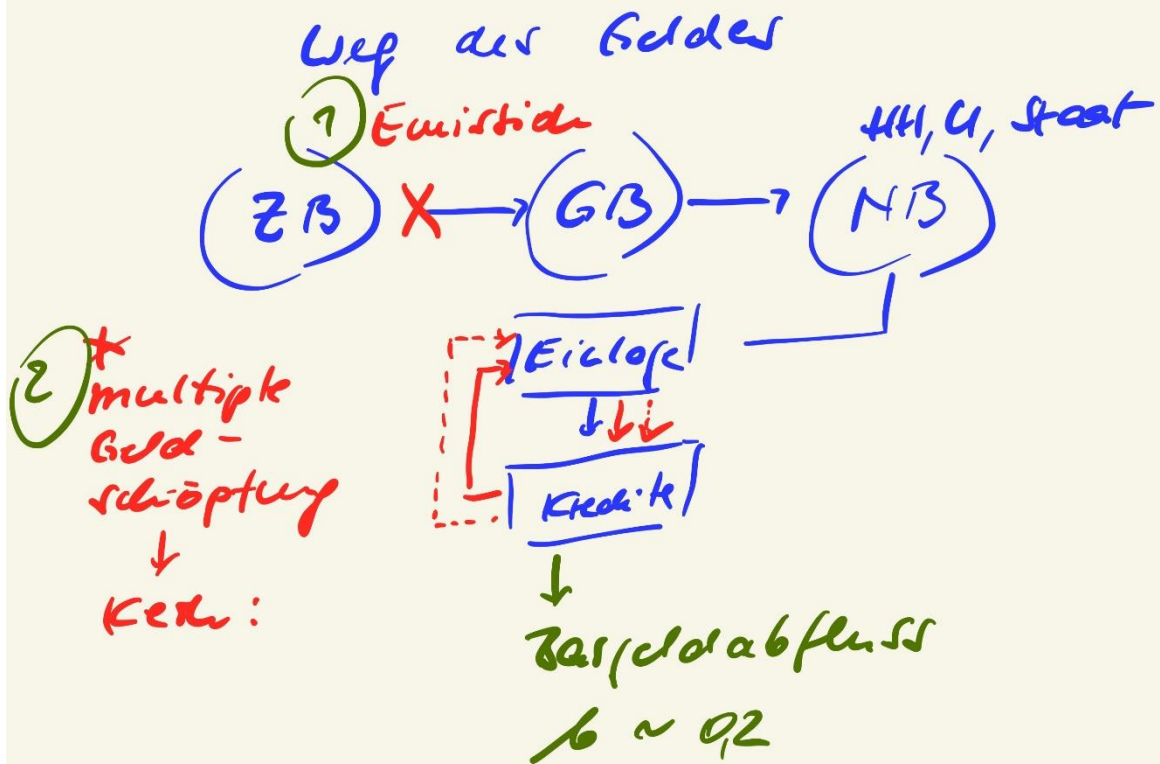 Weg des Geldes
1 Emission
HH, U, Staat
ZB X → GB → NB
Einlage
2 *
multiple
Geld-
schöpfung
↓
Kredite
↓
Bargeldabfluss
b ~ 0,2